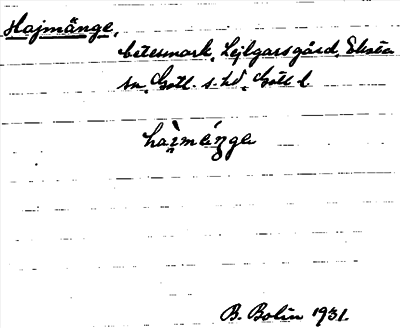 Hajmänge,
betesmark, Lejlgarsgård, Eksta
sn, Gotl. s. hd, Gotl l
B. Bolin 1931